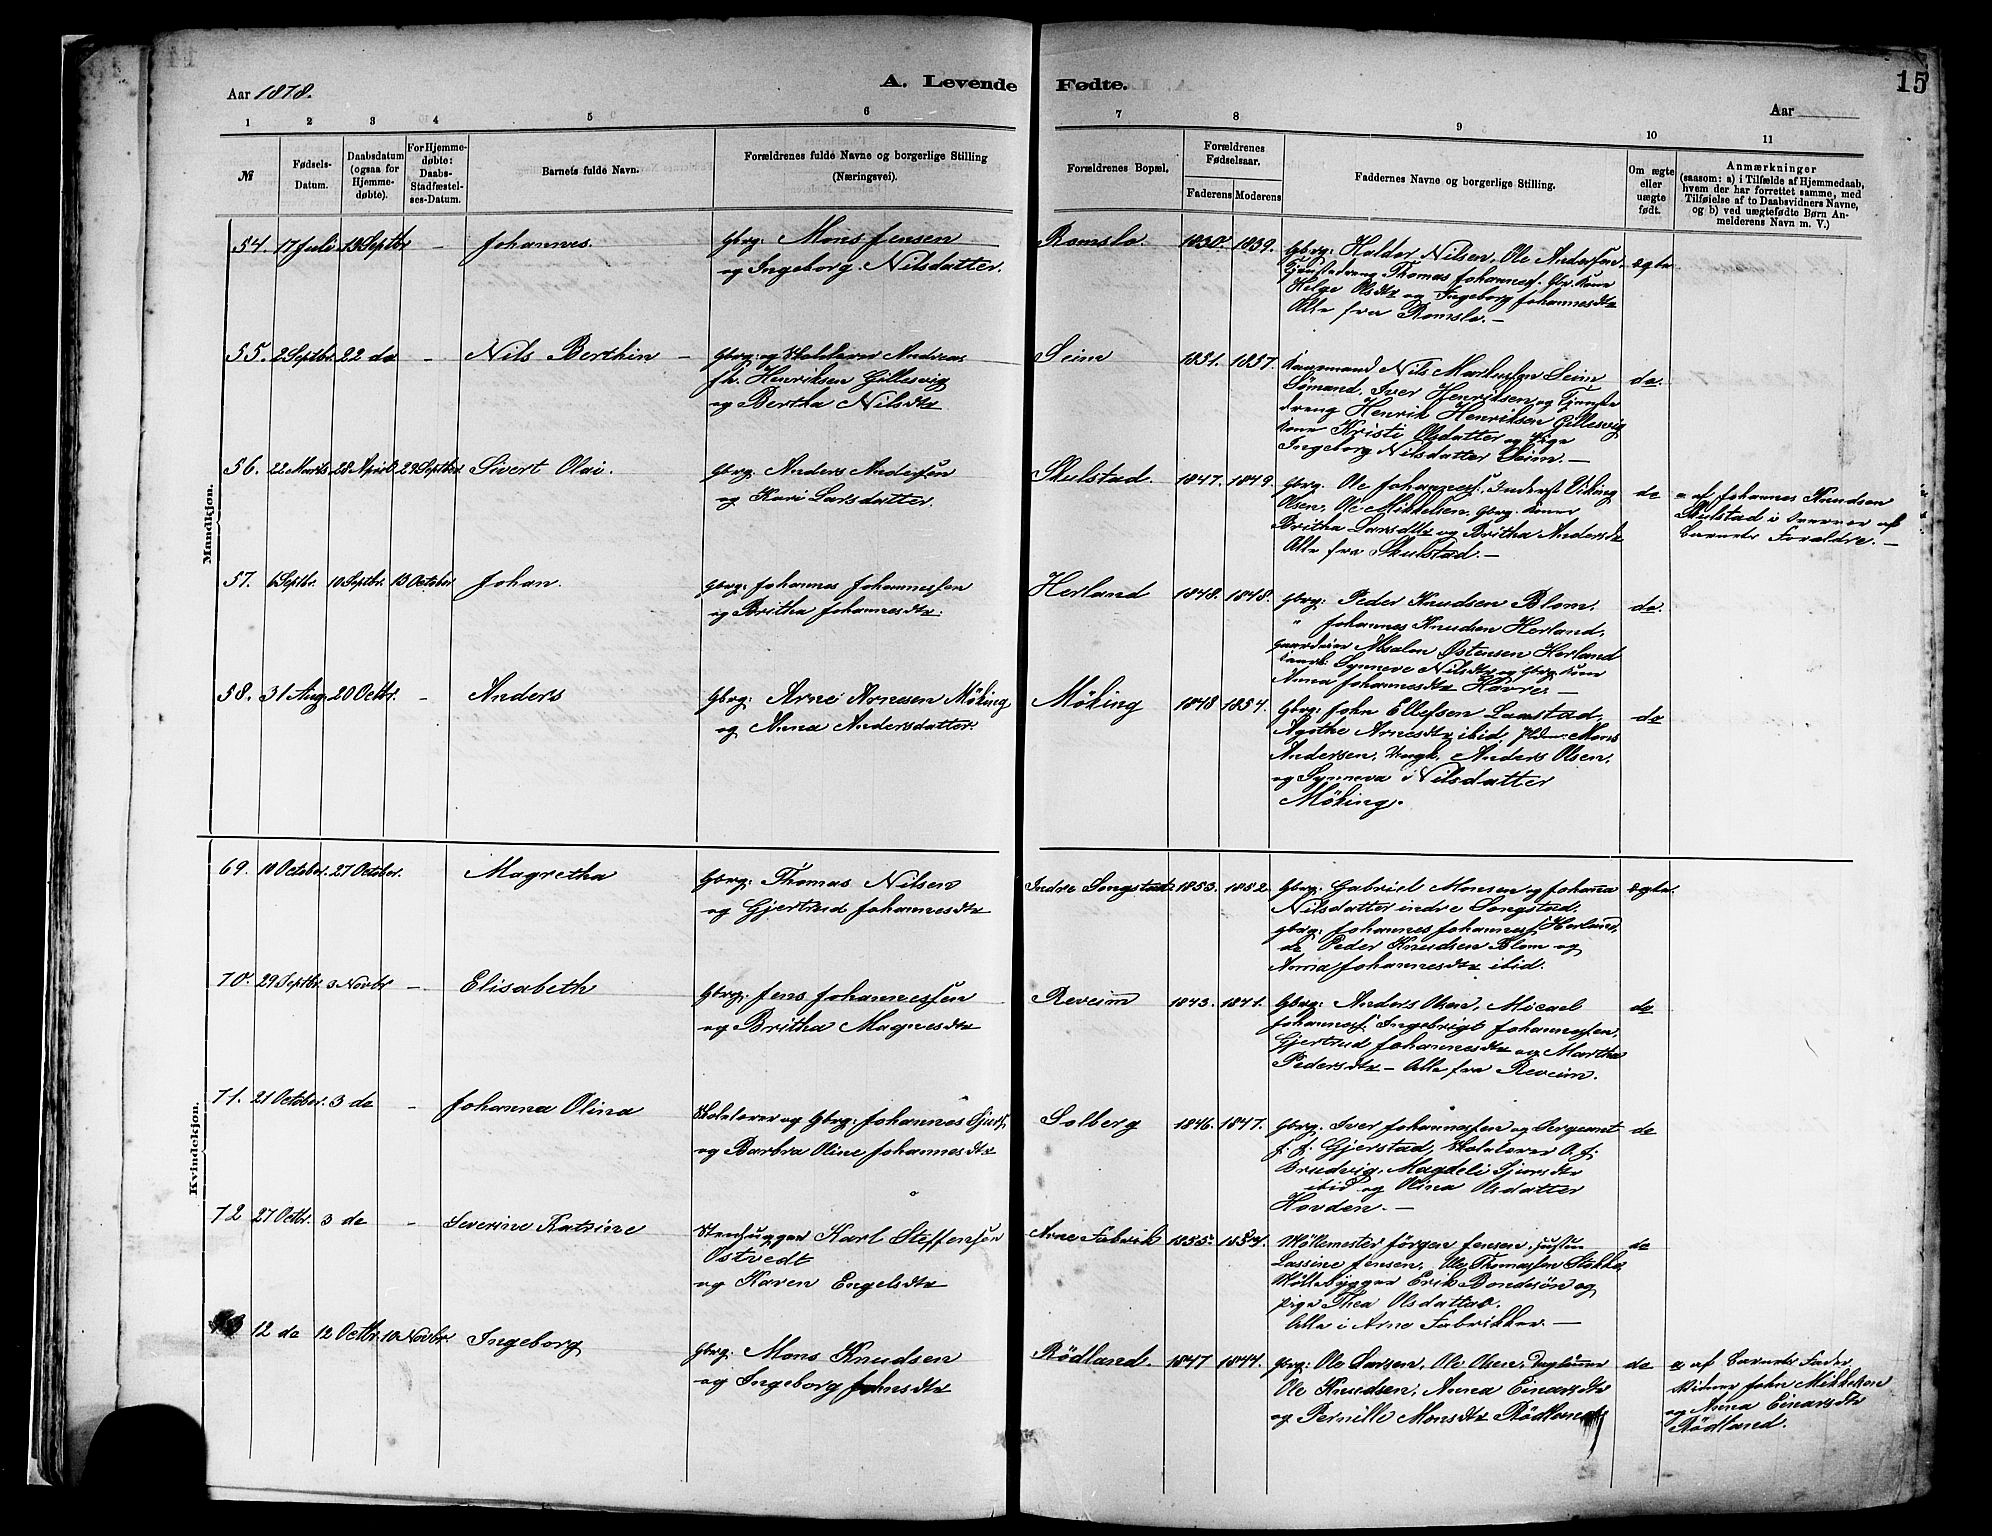 A. Levende Fødte.
15
Aar 1878.
Aar
1 2 3 4 5 6 7 8 9 10 11
№
Fødsels-
Datum.
Daabsdatum
(ogsaa for
Hjemme-
døbte).
For Hjemme-
døbte:
Daabs-
Stadfæstel-
ses-Datum.
Barnets fulde Navn.
Forældrenes fulde Navne og borgerlige Stilling
(Næringsvei).
Forældrenes Bopæl.
Forældrenes
Fødselsaar.
Faderens Moderens
Faddernes Navne og borgerlige Stilling.
Om ægte
eller
uægte
født.
Anmærkninger
(saasom: a) i Tilfælde af Hjemmedaab,
hvem der har forrettet samme, med
Tilføielse af to Daabsvidners Navne,
og b) ved uægtefødte Børn An-
melderens Navn m. V.)
Mandkjøn.
54. 17 Juli 15 Septbr - Johannes.
Gbrg: Mons Jensen
og Ingeborg Nilsdatter.
Romslo. 1830. 1839.
Gbrg: Haldor Nilsen, Ole Andersen,
Tjenestedreng Thomas Johannesf. Gbr. Kone
Helge Olsdtr og Ingeborg Johannesdtr
Alle fra Romslo. -
egte
55. 2 Septbr. 22 do - Nils Berthin -
Gbrg: og Skolelærer Andreas
Fr. Henriksen Gillesvig
og Bertha Nilsdtr
Seim 1851. 1857.
Kaarmand Nils Markussen Seim
Sømand, Iver Henriksen og Tjeneste
dreng Henrik Henriksen Gillesvig
Kone Kristi Olsdatter og Pige
Ingeborg Nilsdatter Seim. -
do.
56. 22 Marts 28 April 29 Septbr Sivert Olai.
Gbrg: Anders Andersen
og Kari Larsdatter.
Skulstad. 1847. 1849.
Gbrg. Ole Johannesf. Inderst Viking
Olsen, Ole Mikkelsen, Gbrg. Koner
Britha Larsdtr og Britha Andersdtr
Alle fra Skulstad. -
do
a af Johannes Knudsen
Skulstad i Nærvær af
Barnets Forældre. -
57. 6 Septbr. 10 Septbr. 13 October Johan.
Gbrg: Johannes Johannessen
og Britha Johannesdtr.
Herland 1848. 1848.
Gbrg: Peder Knudsen Blom.
" Johannes Knudsen Herland,
Gaardeier Absalon Østensen Herland
Synneve Nilsdtr og Gbrg Kone
Anna Johannesdtr Havre. -
do.
58. 31 Aug. 20 Octbr. - Anders
Gbrg: Arne Arnesen Møking
og Anna Andersdatter.
Møking 1848 1854.
Gbrg: John Ellefsen Lanstad,
Agothe Arnesdtr ibid, Mons
Andersen, Ungk. Anders Olsen,
og Synneva Nilsdatter
Møking.
do
Kvindekjøn.
69. 10 October. 27 October. Magretha
Gbrg: Thomas Nilsen
og Gjertrud Johannesdtr
Indre Songstad 1853. 1852
Gbrg: Gabriel Monsen og Johanna
Nilsdatter indre Songstad.
Gbrg: Johannes Johannesf. Herland,
do Peder Knudsen Blom og
Anna Johannesdtr ibid.
egte.
70. 29 Septbr. 3 Novbr - Elisabeth
Gbrg: Jens Johannessen
og Britha Magnesdtr
Reveim 1843. 1841.
Gbrg: Anders Olsen, Micael
Johannesf. Ingebrigt Johannessen,
Gjertrud Johannesdtr og Martha
Pedersdtr - Alle fra Reveim.
do
71. 21 October. 3 do - Johanna Olina
Skolelærer og Gbrg: Johannes Sjursf.
og Barbra Oline Johannesdtr
Solberg 1846. 1847.
Gbrg: Iver Johannessen og Sergeant
J. J. Gjerstad, Skolelærer O. J.
Brudvig, Magdeli Sjursdtr
ibid og Olina Olsdatter
Hovden. -
do
72 27 Octbr. 3 do - Severine Katrine
Stenhugger Karl Steffensen
Ostvedt
og Karen Engelsdtr
Arne Fabrik 1855. 1854.
Møllemester Jørgen Jensen, Hustru
Lassine Jensen, Ole Thomassen Stakke
Møllebygger Erik Bondesøn og
pige Thea Olsdatter.
Alle i Arne Fabrikker. -
do
12 do 12 Octbr 10 Novbr. Ingeborg
Gbrg: Mons Knudsen
og Ingeborg Johnsdtr
Rødland. 1847 1844.
Gbrg: Ole Larsen, Ole Olsen, Daglønner
Ole Knudsen, Anna Einarsdtr
og Pernille Monsdtr Rødland
do
a af Barnets Fader
Vidner John Mikkelsen
og Anna Einarsdtr
Rødland.